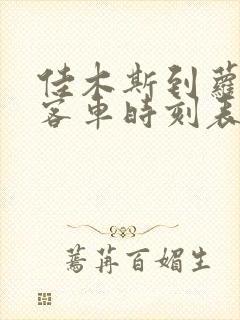 佳木斯到蘿
客車時刻表
蔫苒百媚生